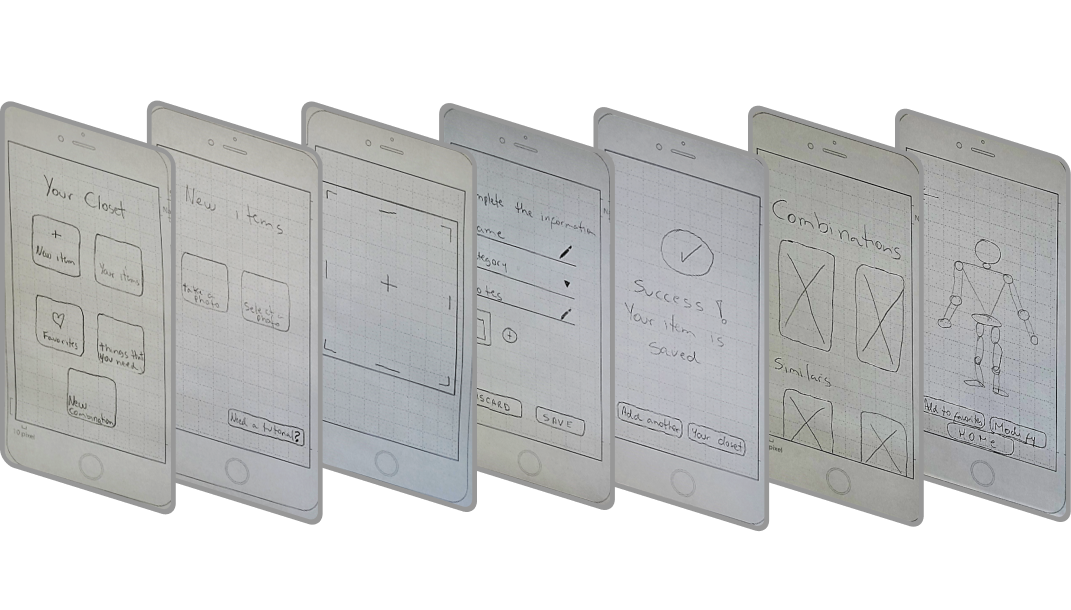 Your Closet
+
New item
Your items
Favorites
things that
you need
New
Combination
New items
take a
photo
Select a
photo
Need a tutorial?
+
mplete the information
ame
tegory
otes
+
ISCARD
SAVE
Success!
Your item is
saved
Add another
Your closet
Combinations
Similars
Add to favorites
Modify
HOME